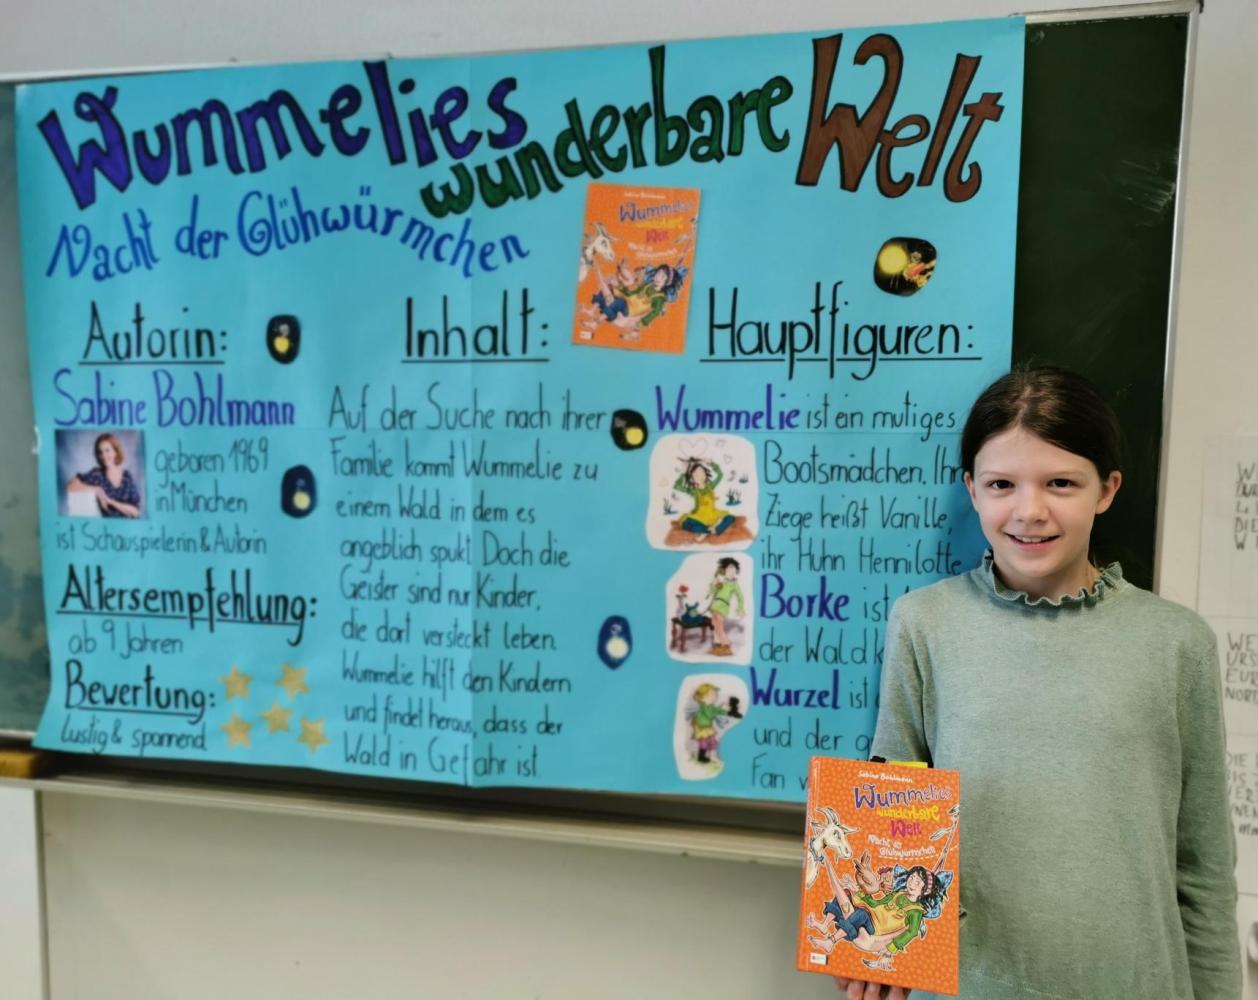 Wummelies wunderbare Welt
Nacht der Glühwürmchen
Autorin:
Sabine Bohlmann
geboren 1969
in München
ist Schauspielerin & Autorin
Altersempfehlung:
ab 9 Jahren
Bewertung:
lustig & spannend
Inhalt:
Auf der Suche nach ihrer
Familie kommt Wummelie zu
einem Wald in dem es
angeblich spukt. Doch die
Geister sind nur Kinder,
die dort versteckt leben.
Wummelie hilft den Kindern
und findet heraus, dass der
Wald in Gefahr ist
Sabine Bohlmann
Wummelies
wunderbare
Welt
Nacht der
Glühwürmchen
Hauptfiguren:
Wummelie ist ein mutiges
Bootsmädchen. Ihr
Ziege heißt Vanille,
ihr Huhn Hennilotte
Borke ist
der Waldk
Wurzel ist
und der g
Fan
Sabine Bohlmann
Wummelies
wunderbare
Welt
Nacht der
Glühwürmchen